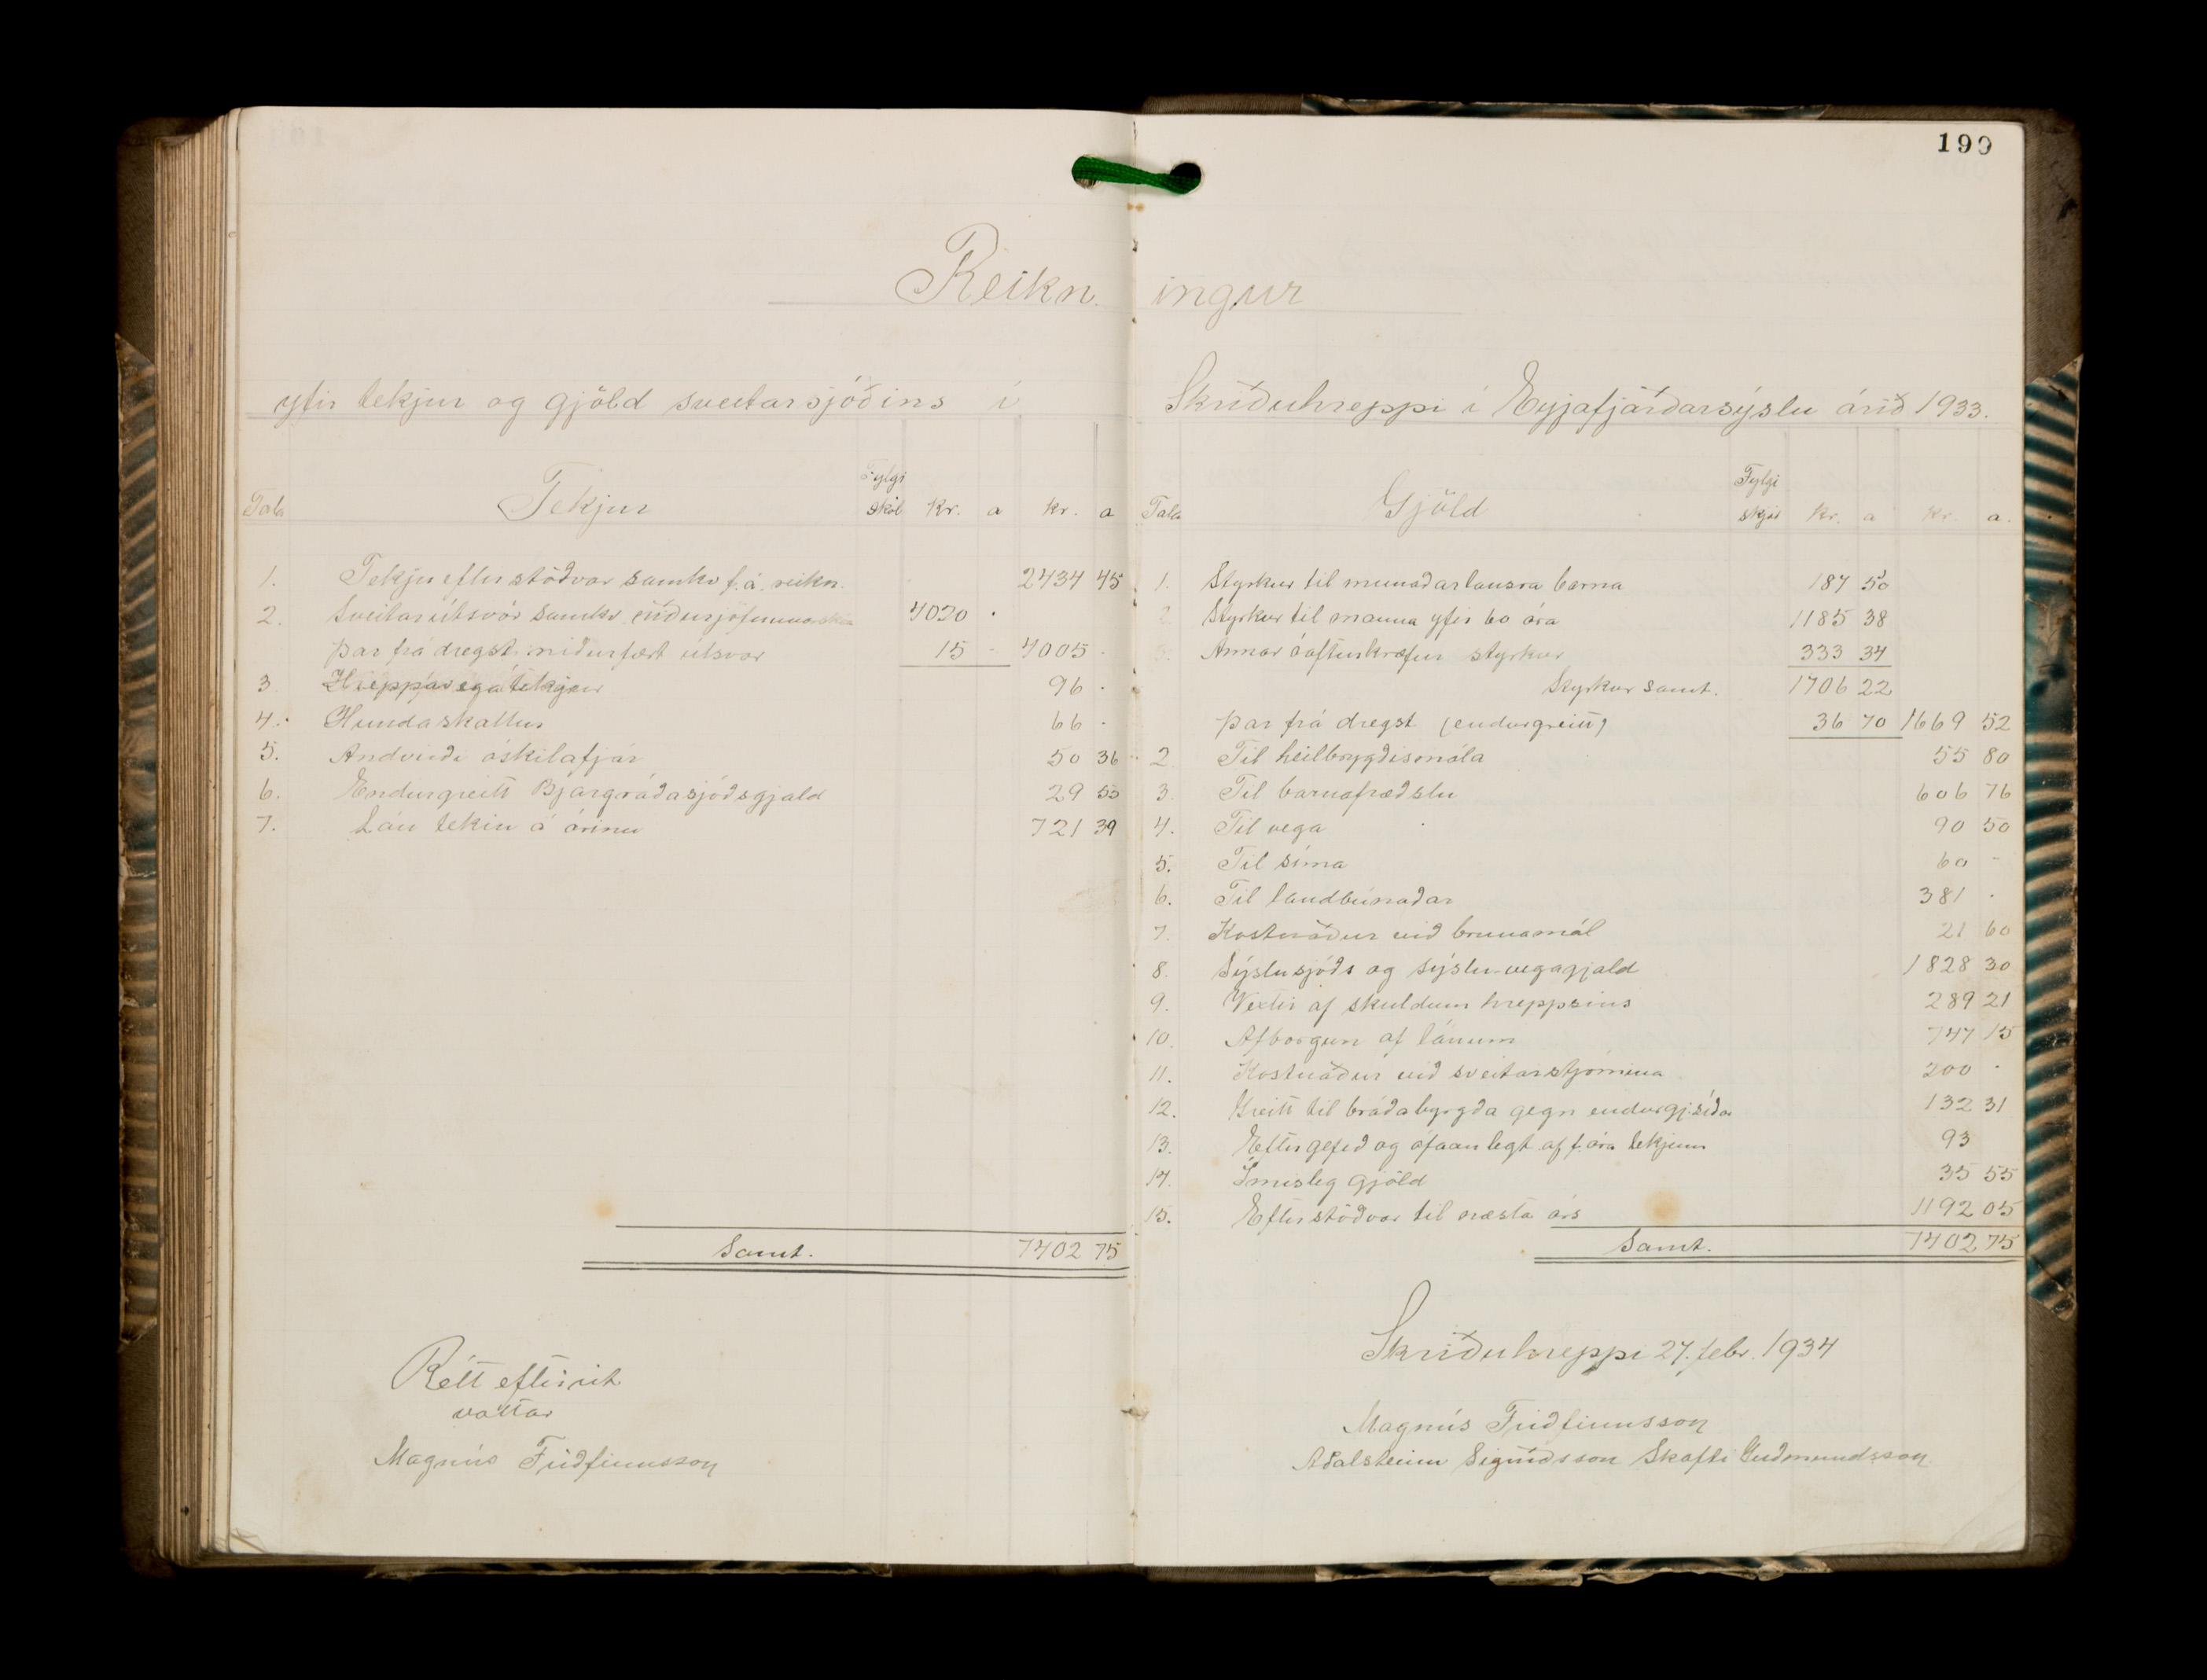 199
Reikningur
yfir tekjur og gjöld sveitarsjóðins í Skriðuhreppi í Eyjafjarðarsýslu árið 1933.
Tala Tekjur Fylgi sköl Kr. a Kr. a
1. Tekjueftirstöðvar samkv f.á. reikn. 2434 45
2. Sveitarútsvör samkv. niðurjöfnunarskrá 4020 .
Þar frá dregst niðurfært útsvar 15 - 4005 .
3 Hreppavegatekjur 96 .
4. Hundaskattur 66 .
5. Andvirði óskilafjár 50 36
6. Endurgreitt Bjargráðasjóðsgjald 29 55
7. Lán tekin á árinu 721 39
Samt. 7402 75
Rétt eftirrit
vottar
Magnús Friðfinnsson
Tala Gjöld Fylgi skjöl Kr. a Kr. a.
1. Styrkur til munaðarlausra barna 187 50
2. Styrkur til manna yfir 60 ára 1185 38
3. Annar óafturkræfur styrkur 333 34
Styrkur samt. 1706 22
Þar frá dregst (endurgreitt) 36 70 1669 52
2. Til heilbrygðismála 55 80
3. Til barnafræðslu 606 76
4. Til vega 90 50
5. Til síma 60 -
6. Til landbúnaðar 381 .
7. Kostnaður við brunamál 21 60
8. Sýslusjóðs og sýslu-vegagjald 1828 30
9. Vextir af skuldum hreppsins 289 21
10. Afborgun af lánum 747 15
11. Kostnaður við sveitarstjórnina 200 .
12. Greitt til bráðabyrgða gegn endurgj. síðar 132 31
13. Eftirgefið og ófáanlegt af f. ára tekjum 93
14. Ímisleg gjöld 35 55
15. Eftirstöðvar til næsta árs 1192 05
Samt. 7402 75
Skriðuhreppi 27. febr. 1934
Magnús Friðfinnsson
Aðalsteinn Sigurðsson Skafti Guðmundsson